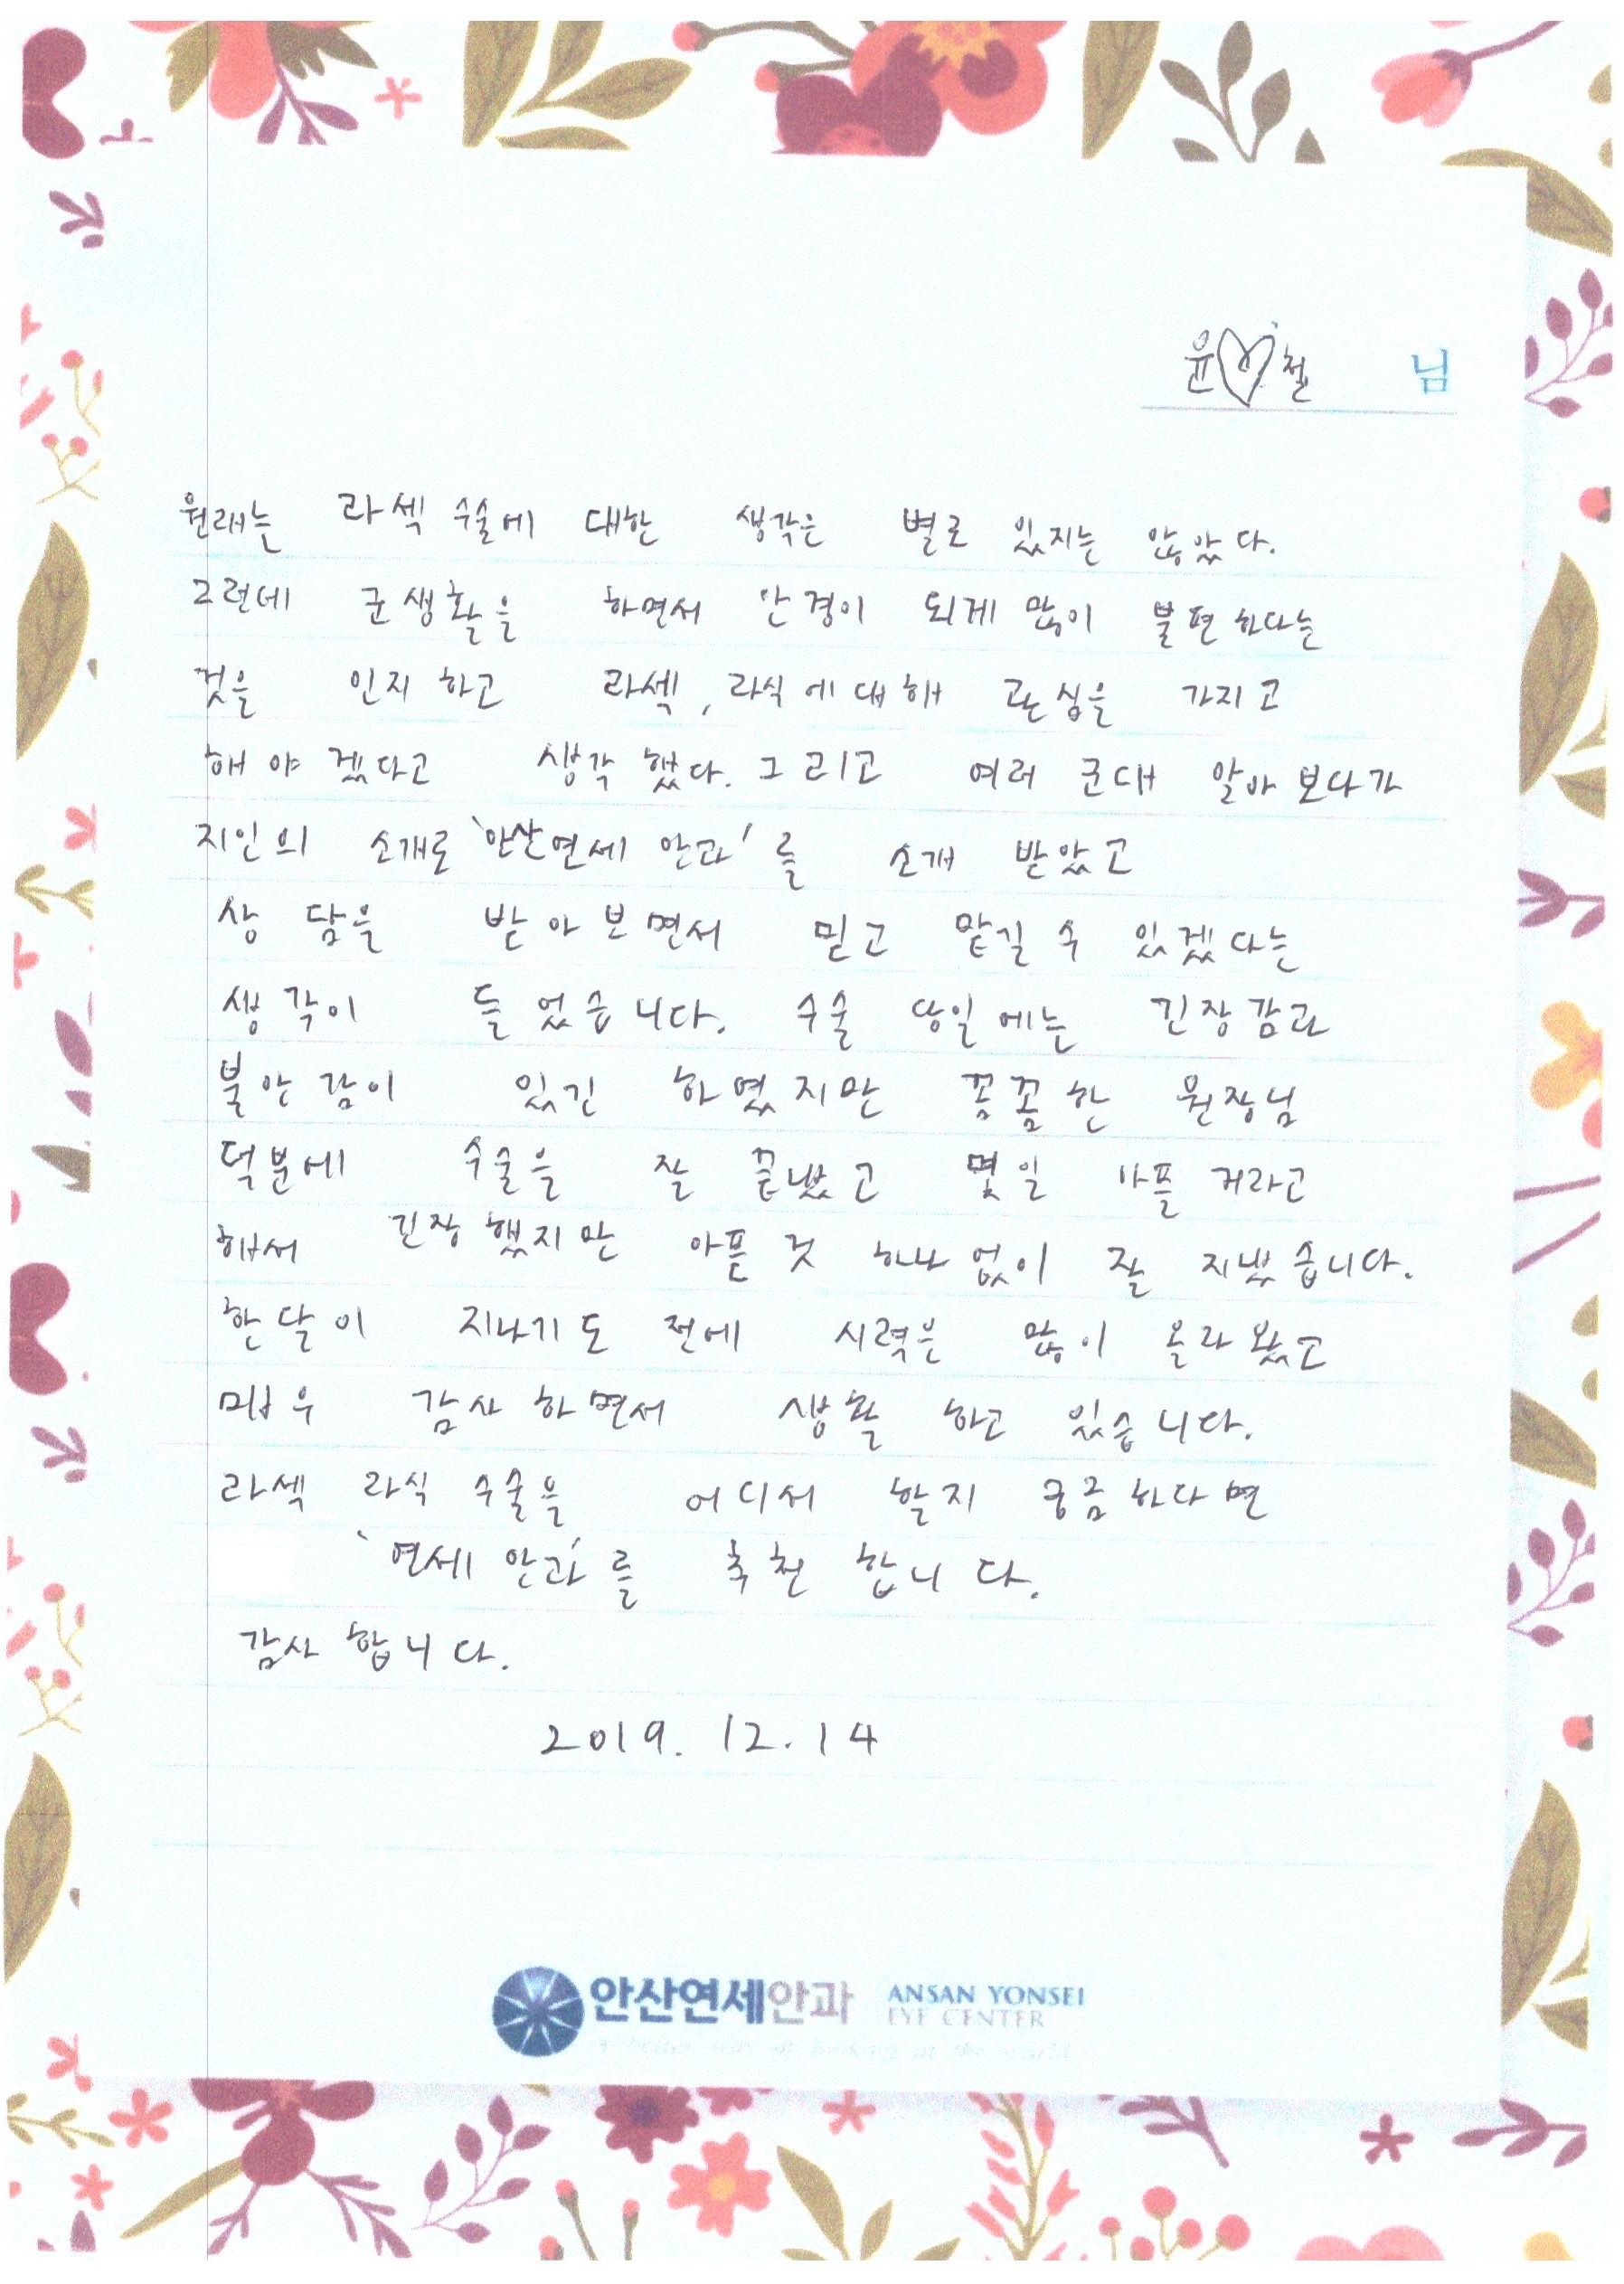 윤♡철 님
원래는 라섹 수술에 대한 생각은 별로 있지는 않았다.
그런데 군생활을 하면서 안경이 되게 많이 불편하다는
것을 인지 하고 라섹, 라식에 대해 관심을 가지고
해야겠다고 생각했다. 그리고 여러 군대 알아보다가
지인의 소개로 '안산연세 안과'를 소개 받았고
상담을 받아보면서 믿고 맡길 수 있겠다는
생각이 들었습니다. 수술 당일에는 긴장감과
불안감이 있긴 하였지만 꼼꼼한 원장님
덕분에 수술을 잘 끝냈고 몇일 아플거라고
해서 긴장했지만 아픈것 하나 없이 잘 지냈습니다.
한달이 지나기도 전에 시력은 많이 올라왔고
매우 감사하면서 생활 하고 있습니다.
라섹 라식 수술을 어디서 할지 궁금하다면
'연세 안과'를 추천 합니다.
감사합니다.
2019. 12. 14
안산연세안과 ANSAN YONSEI
EYE CENTER